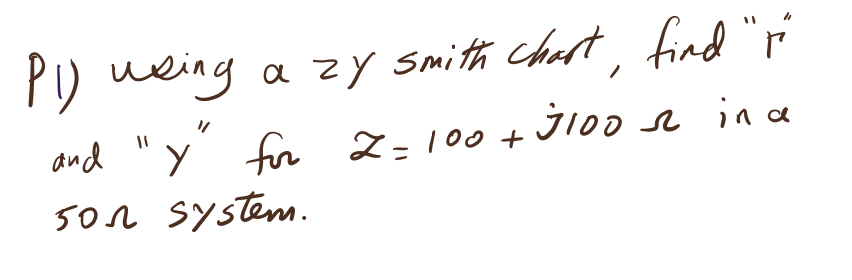 P1) using a zy smith chart, find "Γ"
and "y" for Z = 100 + j100 Ω in a
50Ω system.